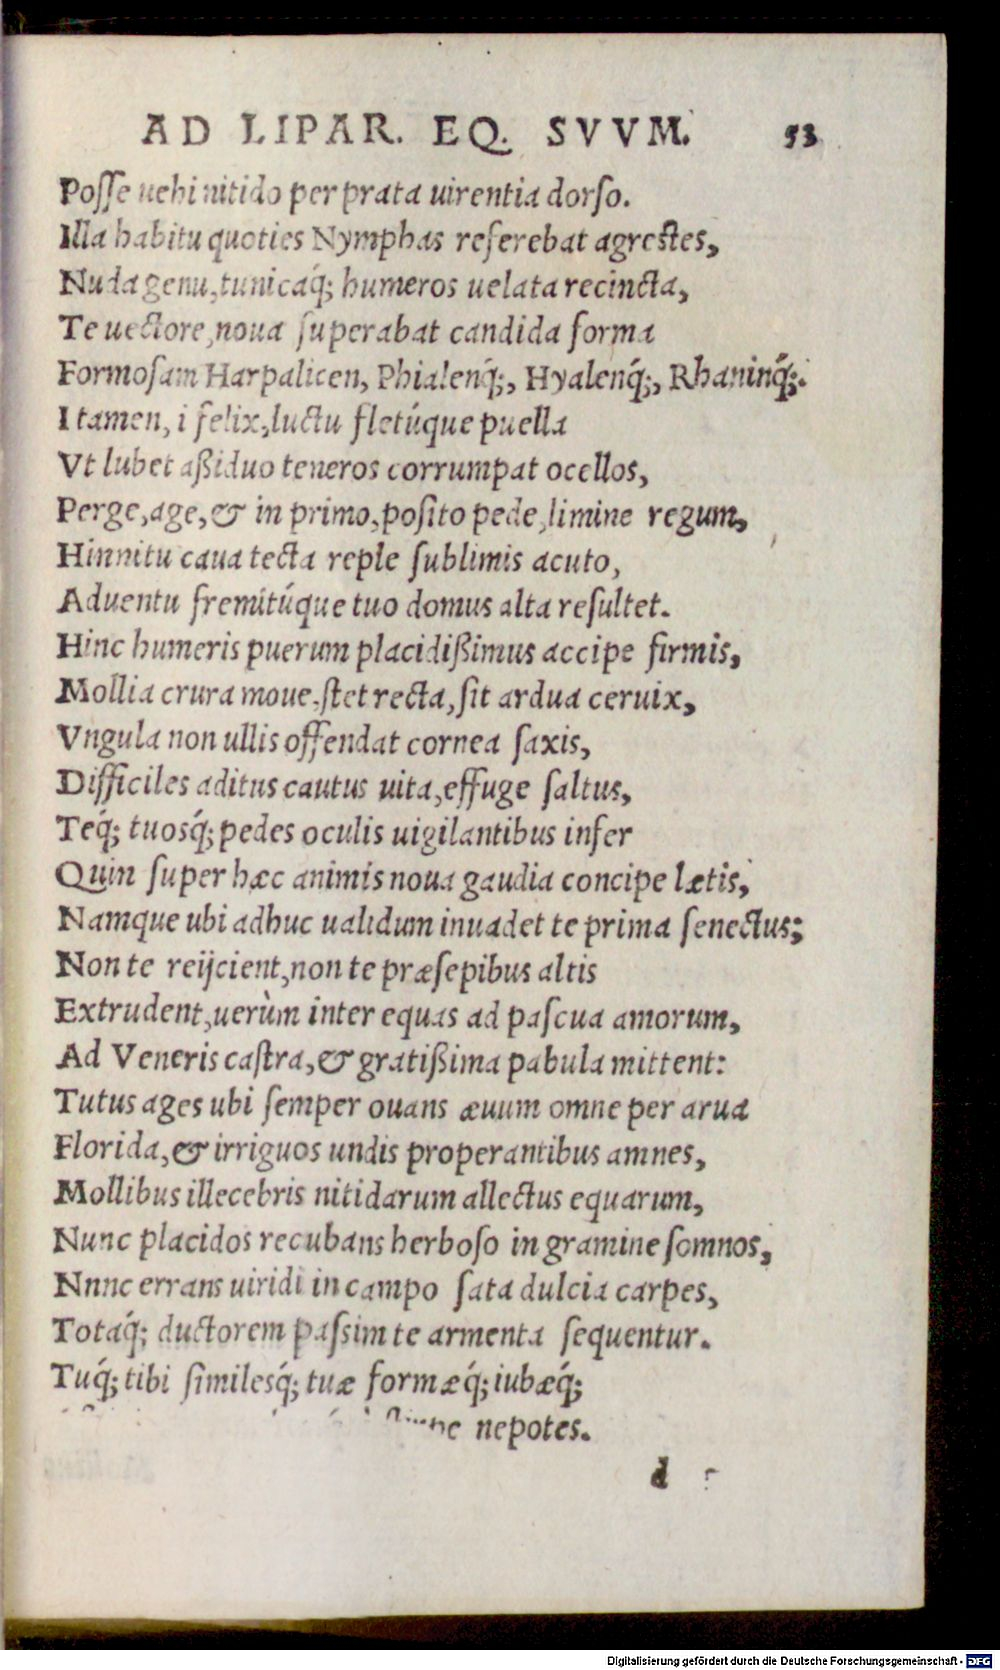 AD LIPAR. EQ. SVVM. 53
Posse uehi nitido per prata uirentia dorso.
Illa habitu quoties Nymphas referebat agrestes,
Nuda genu, tunicaq́; humeros uelata recincta,
Te uectore, noua superabat candida forma
Formosam Harpalicen, Phialenq́;, Hyalenq́;, Rhaninq́;.
I tamen, i felix, luctu fletúque puella
Vt lubet aßiduo teneros corrumpat ocellos,
Perge, age, & in primo, posito pede, limine regum,
Hinnitu caua tecta reple sublimis acuto,
Aduentu fremitúque tuo domus alta resultet.
Hinc humeris puerum placidißimus accipe firmis,
Mollia crura moue, stet recta, sit ardua ceruix,
Vngula non ullis offendat cornea saxis,
Difficiles aditus cautus uita, effuge saltus,
Teq́; tuosq́; pedes oculis uigilantibus infer
Quin super hæc animis noua gaudia concipe lætis,
Namque ubi adhuc ualidum inuadet te prima senectus;
Non te reijcient, non te præsepibus altis
Extrudent, uerùm inter equas ad pascua amorum,
Ad Veneris castra, & gratißima pabula mittent:
Tutus ages ubi semper ouans æuum omne per arua
Florida, & irriguos undis properantibus amnes,
Mollibus illecebris nitidarum allectus equarum,
Nunc placidos recubans herboso in gramine somnos,
Nnnc errans uiridi in campo sata dulcia carpes,
Totaq́; ductorem passim te armenta sequentur.
Tuq́; tibi similesq́; tuæ formæq́; iubæq́;
nepotes.
d
Digitalisierung gefördert durch die Deutsche Forschungsgemeinschaft - DFG